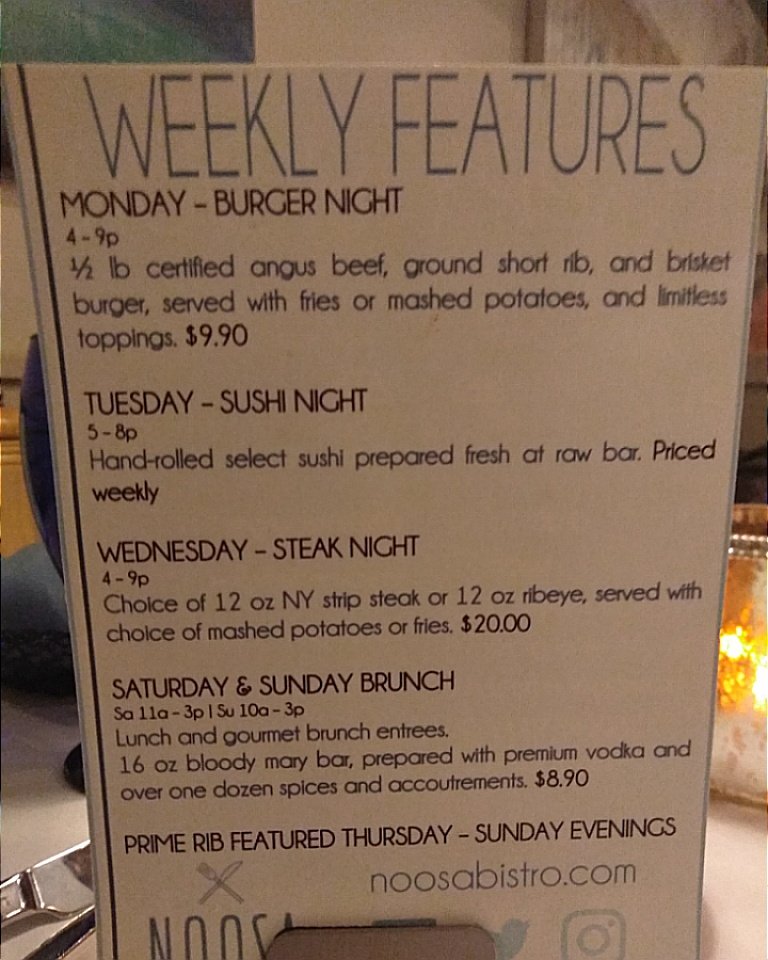 WEEKLY FEATURES
MONDAY – BURGER NIGHT
4 – 9p
½ lb certified angus beef, ground short rib, and brisket
burger, served with fries or mashed potatoes, and limitless
toppings. $9.90
TUESDAY – SUSHI NIGHT
5 – 8p
Hand-rolled select sushi prepared fresh at raw bar. Priced
weekly
WEDNESDAY – STEAK NIGHT
4 – 9p
Choice of 12 oz NY strip steak or 12 oz ribeye, served with
choice of mashed potatoes or fries. $20.00
SATURDAY & SUNDAY BRUNCH
Sa 11a – 3p | Su 10a – 3p
Lunch and gourmet brunch entrees.
16 oz bloody mary bar, prepared with premium vodka and
over one dozen spices and accoutrements. $8.90
PRIME RIB FEATURED THURSDAY – SUNDAY EVENINGS
noosabistro.com
NOOSA